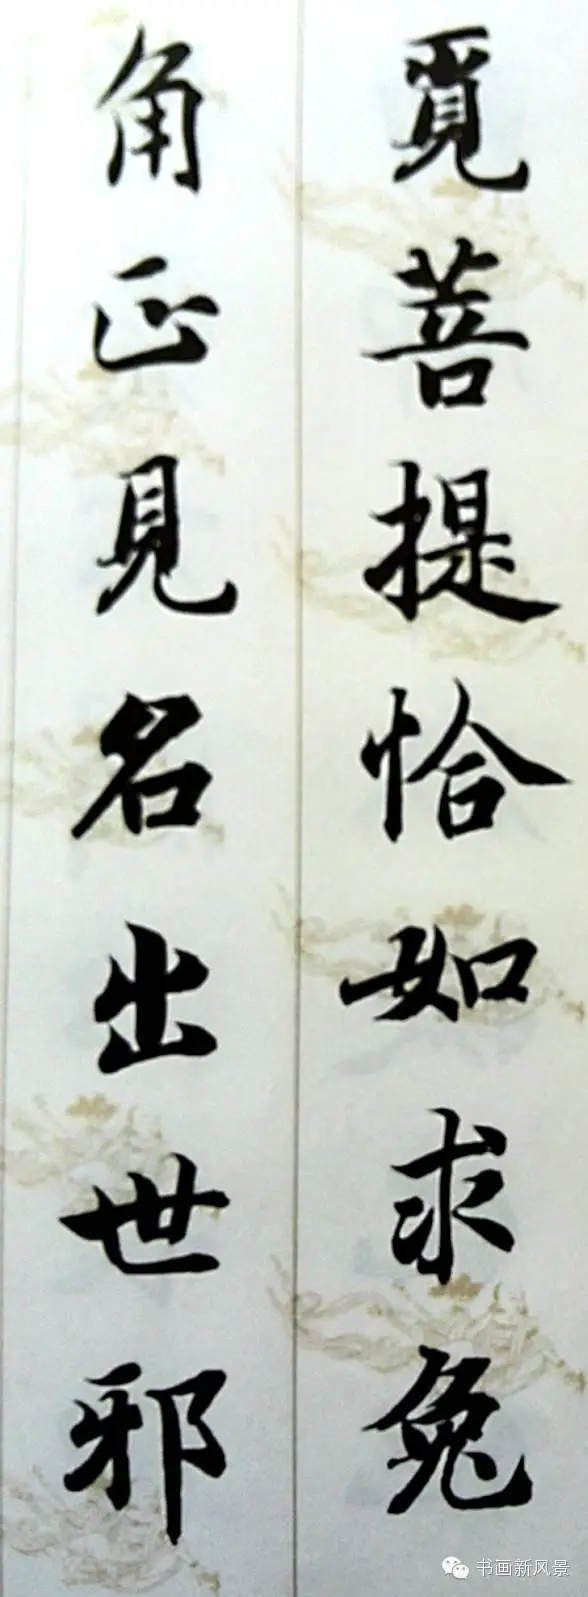 覓菩提恰如求兔
角正見名出世邪
书画新风景